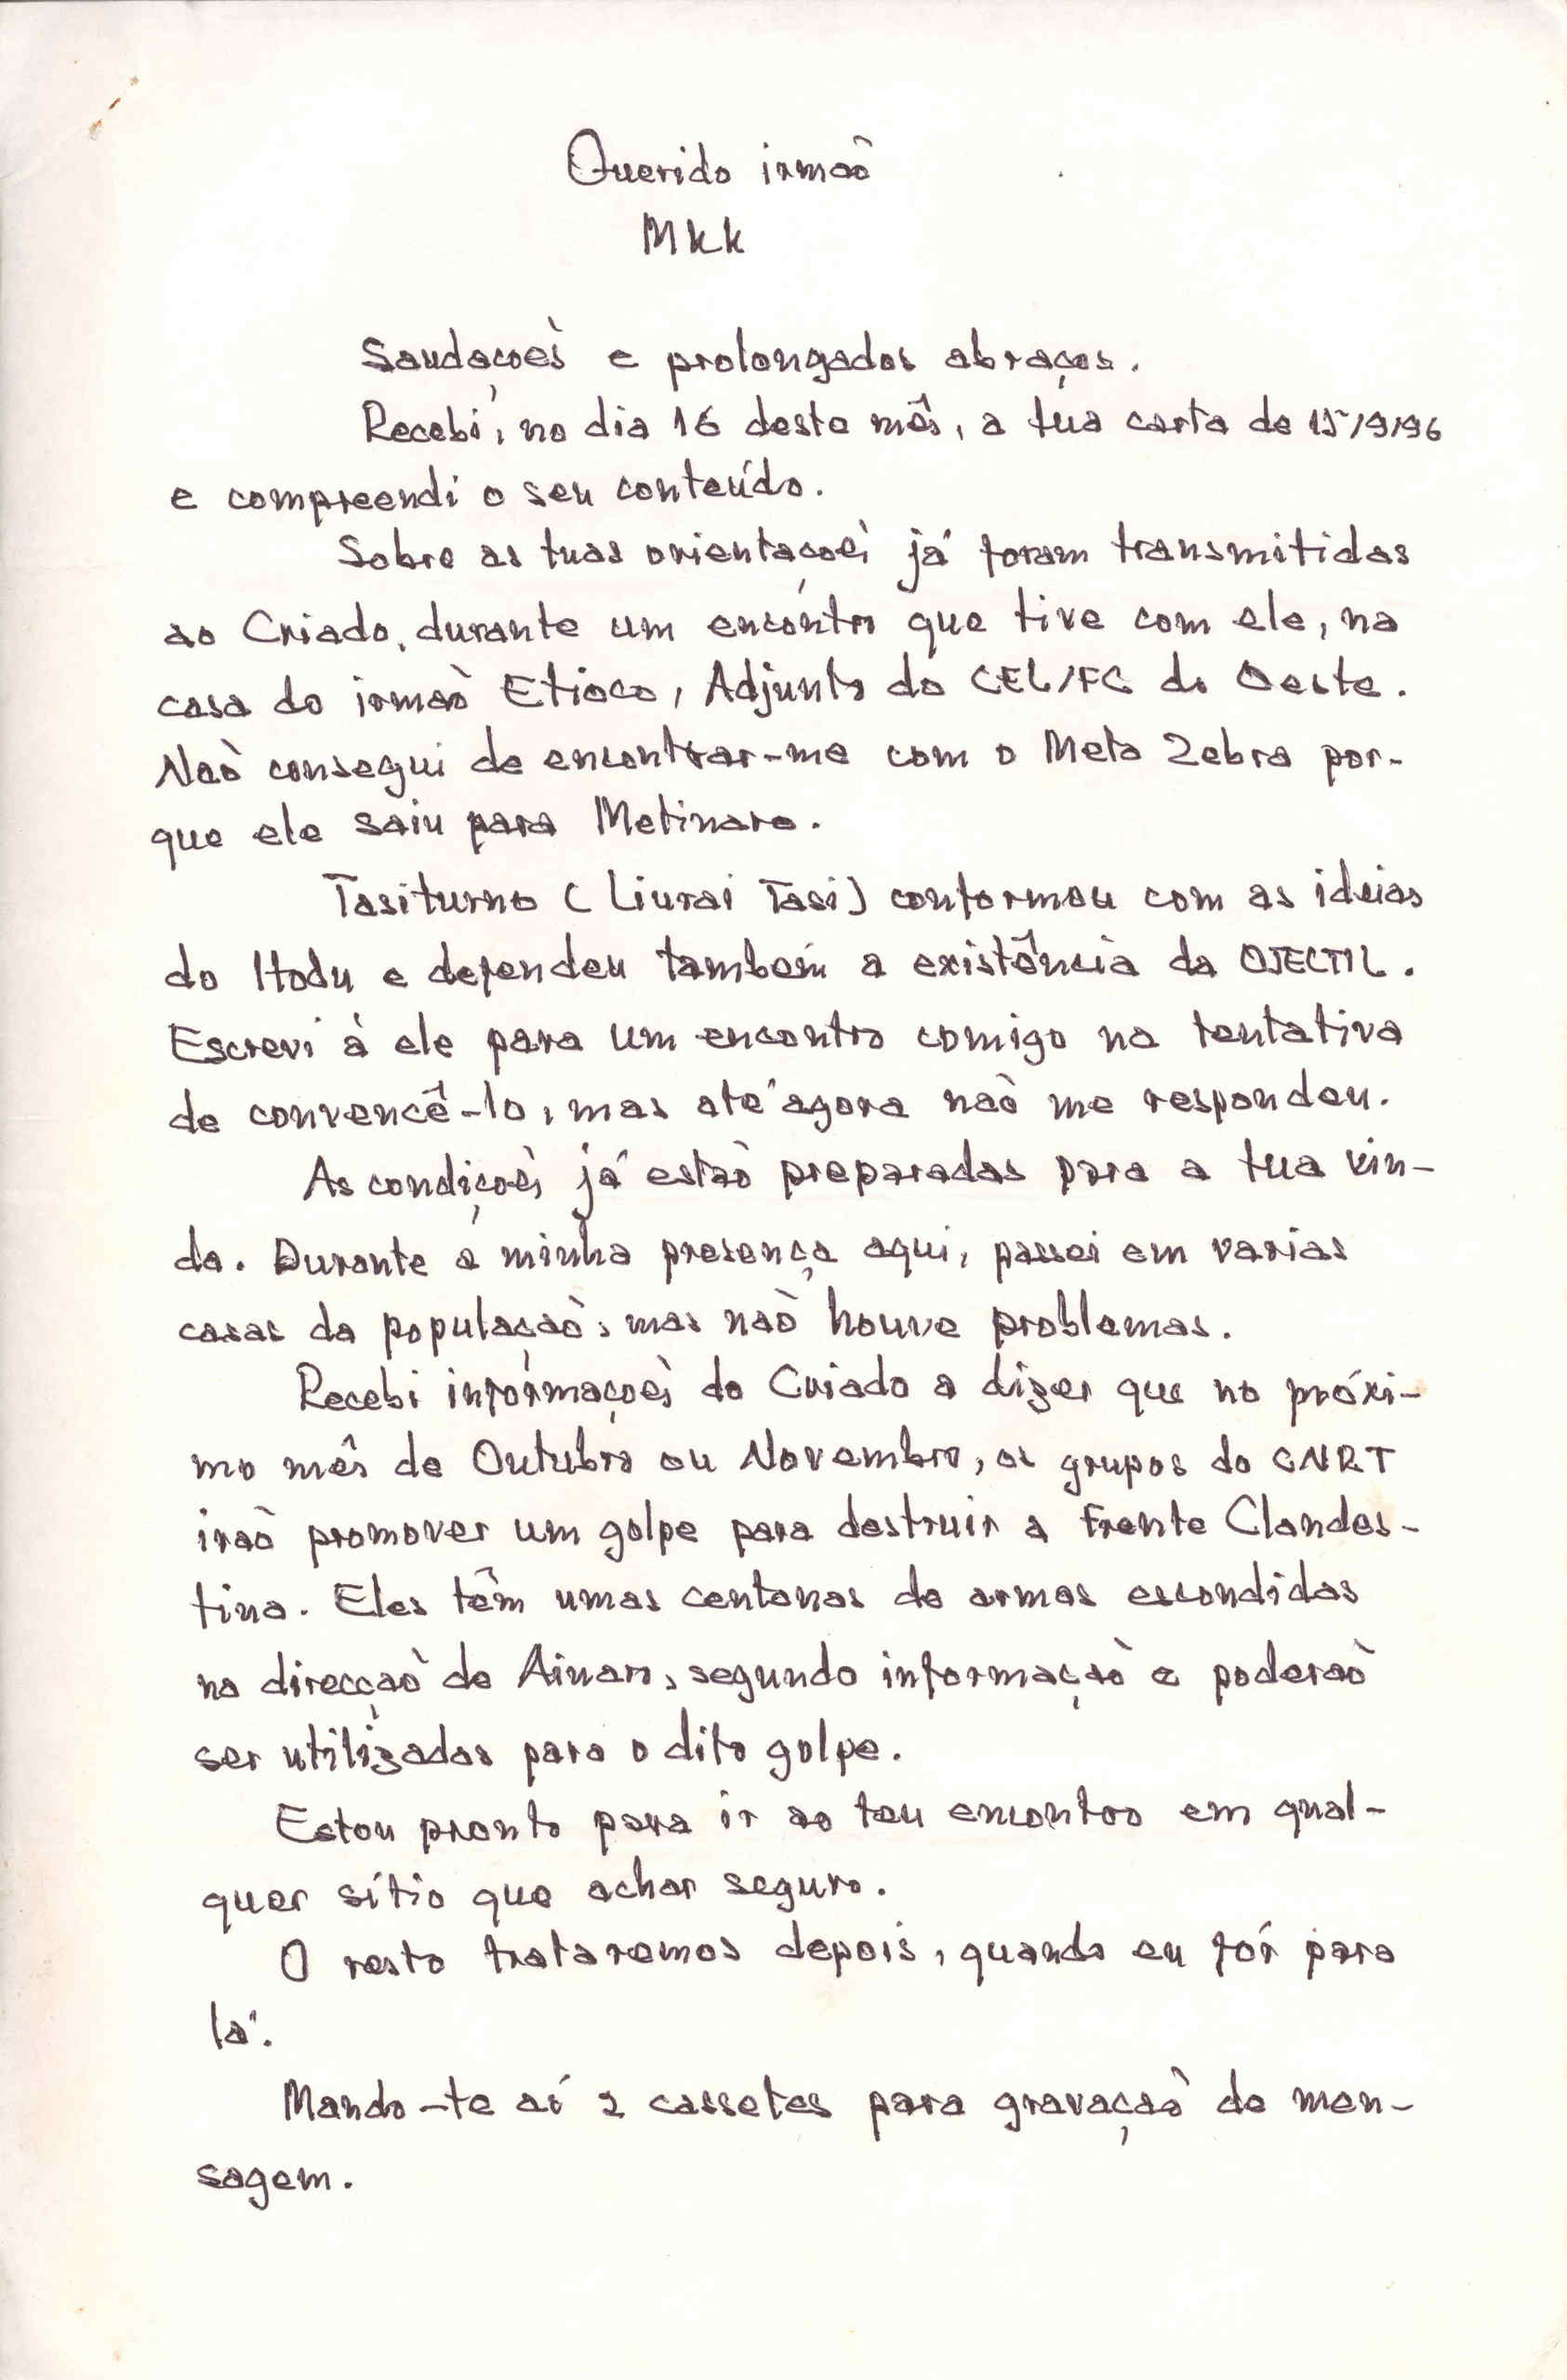 Querido irmão
Mkk
Saudações e prolongados abraços.
Recebi, no dia 16 deste mês, a tua carta de 15/9/96
e compreendi o seu conteúdo.
Sobre as tuas orientações já foram transmitidas
ao Criado, durante um encontro que tive com ele, na
casa do irmão Etioco, Adjunto do CEL/FC do Oeste.
Não consegui de encontrar-me com o Meta Zebra por-
que ele saiu para Metinaro.
Tasiturno (Liurai Tasi) conformou com as ideias
do Hodu e defendeu também a existência da OJECTIL.
Escrevi à ele para um encontro comigo na tentativa
de convencê-lo, mas até agora não me respondeu.
As condições já estão preparadas para a tua vin-
da. Durante a minha presença aqui, passei em varias
casas da população, mas não houve problemas.
Recebi informações do Criado a dizer que no próxi-
mo mês de Outubro ou Novembro, os grupos do CNRT
irão promover um golpe para destruir a Frente Clandes-
tina. Eles têm umas centenas de armas escondidas
na direcção de Ainaro, segundo informação e poderão
ser utilizadas para o dito golpe.
Estou pronto para ir ao teu encontro em qual-
quer sítio que achar seguro.
O resto trataremos depois, quando eu fôr para
lá.
Mando-te aí 2 cassetes para gravação de men-
sagem.